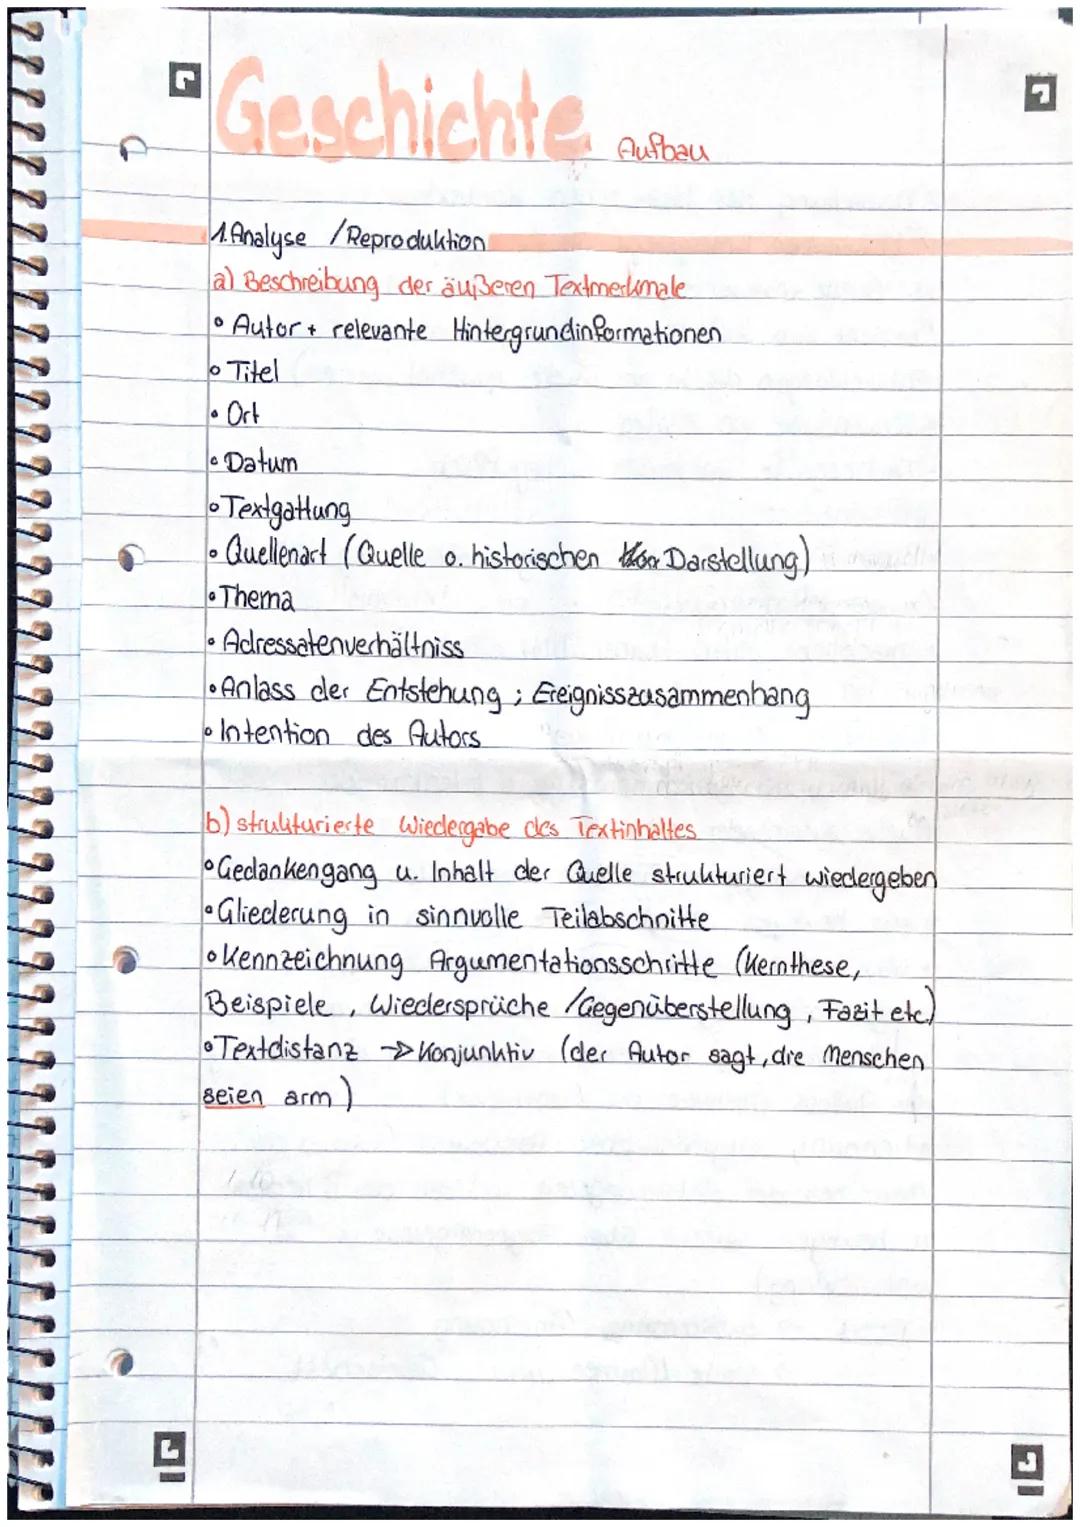 Geschichte Aufbau
1. Analyse / Reproduktion
a) Beschreibung der äußeren Textmerkmale
• Autor + relevante Hintergrundinformationen
• Titel
• Ort
• Datum
• Textgattung
• Quellenart (Quelle o. historischen Darstellung)
• Thema
• Adressatenverhältniss
• Anlass der Entstehung ; Ereignisszusammenhang
• Intention des Autors
b) strukturierte Wiedergabe des Textinhaltes
• Gedankengang u. Inhalt der Quelle strukturiert wiedergeben
• Gliederung in sinnvolle Teilabschnitte
• Kennzeichnung Argumentationsschritte (Kernthese,
Beispiele, Wiedersprüche / Gegenüberstellung, Fazit etc.)
• Textdistanz → Konjunktiv (der Autor sagt, die Menschen
seien arm)